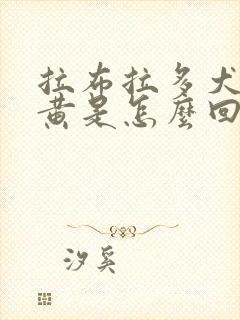 拉布拉多犬
黄是怎麼回
汐奚